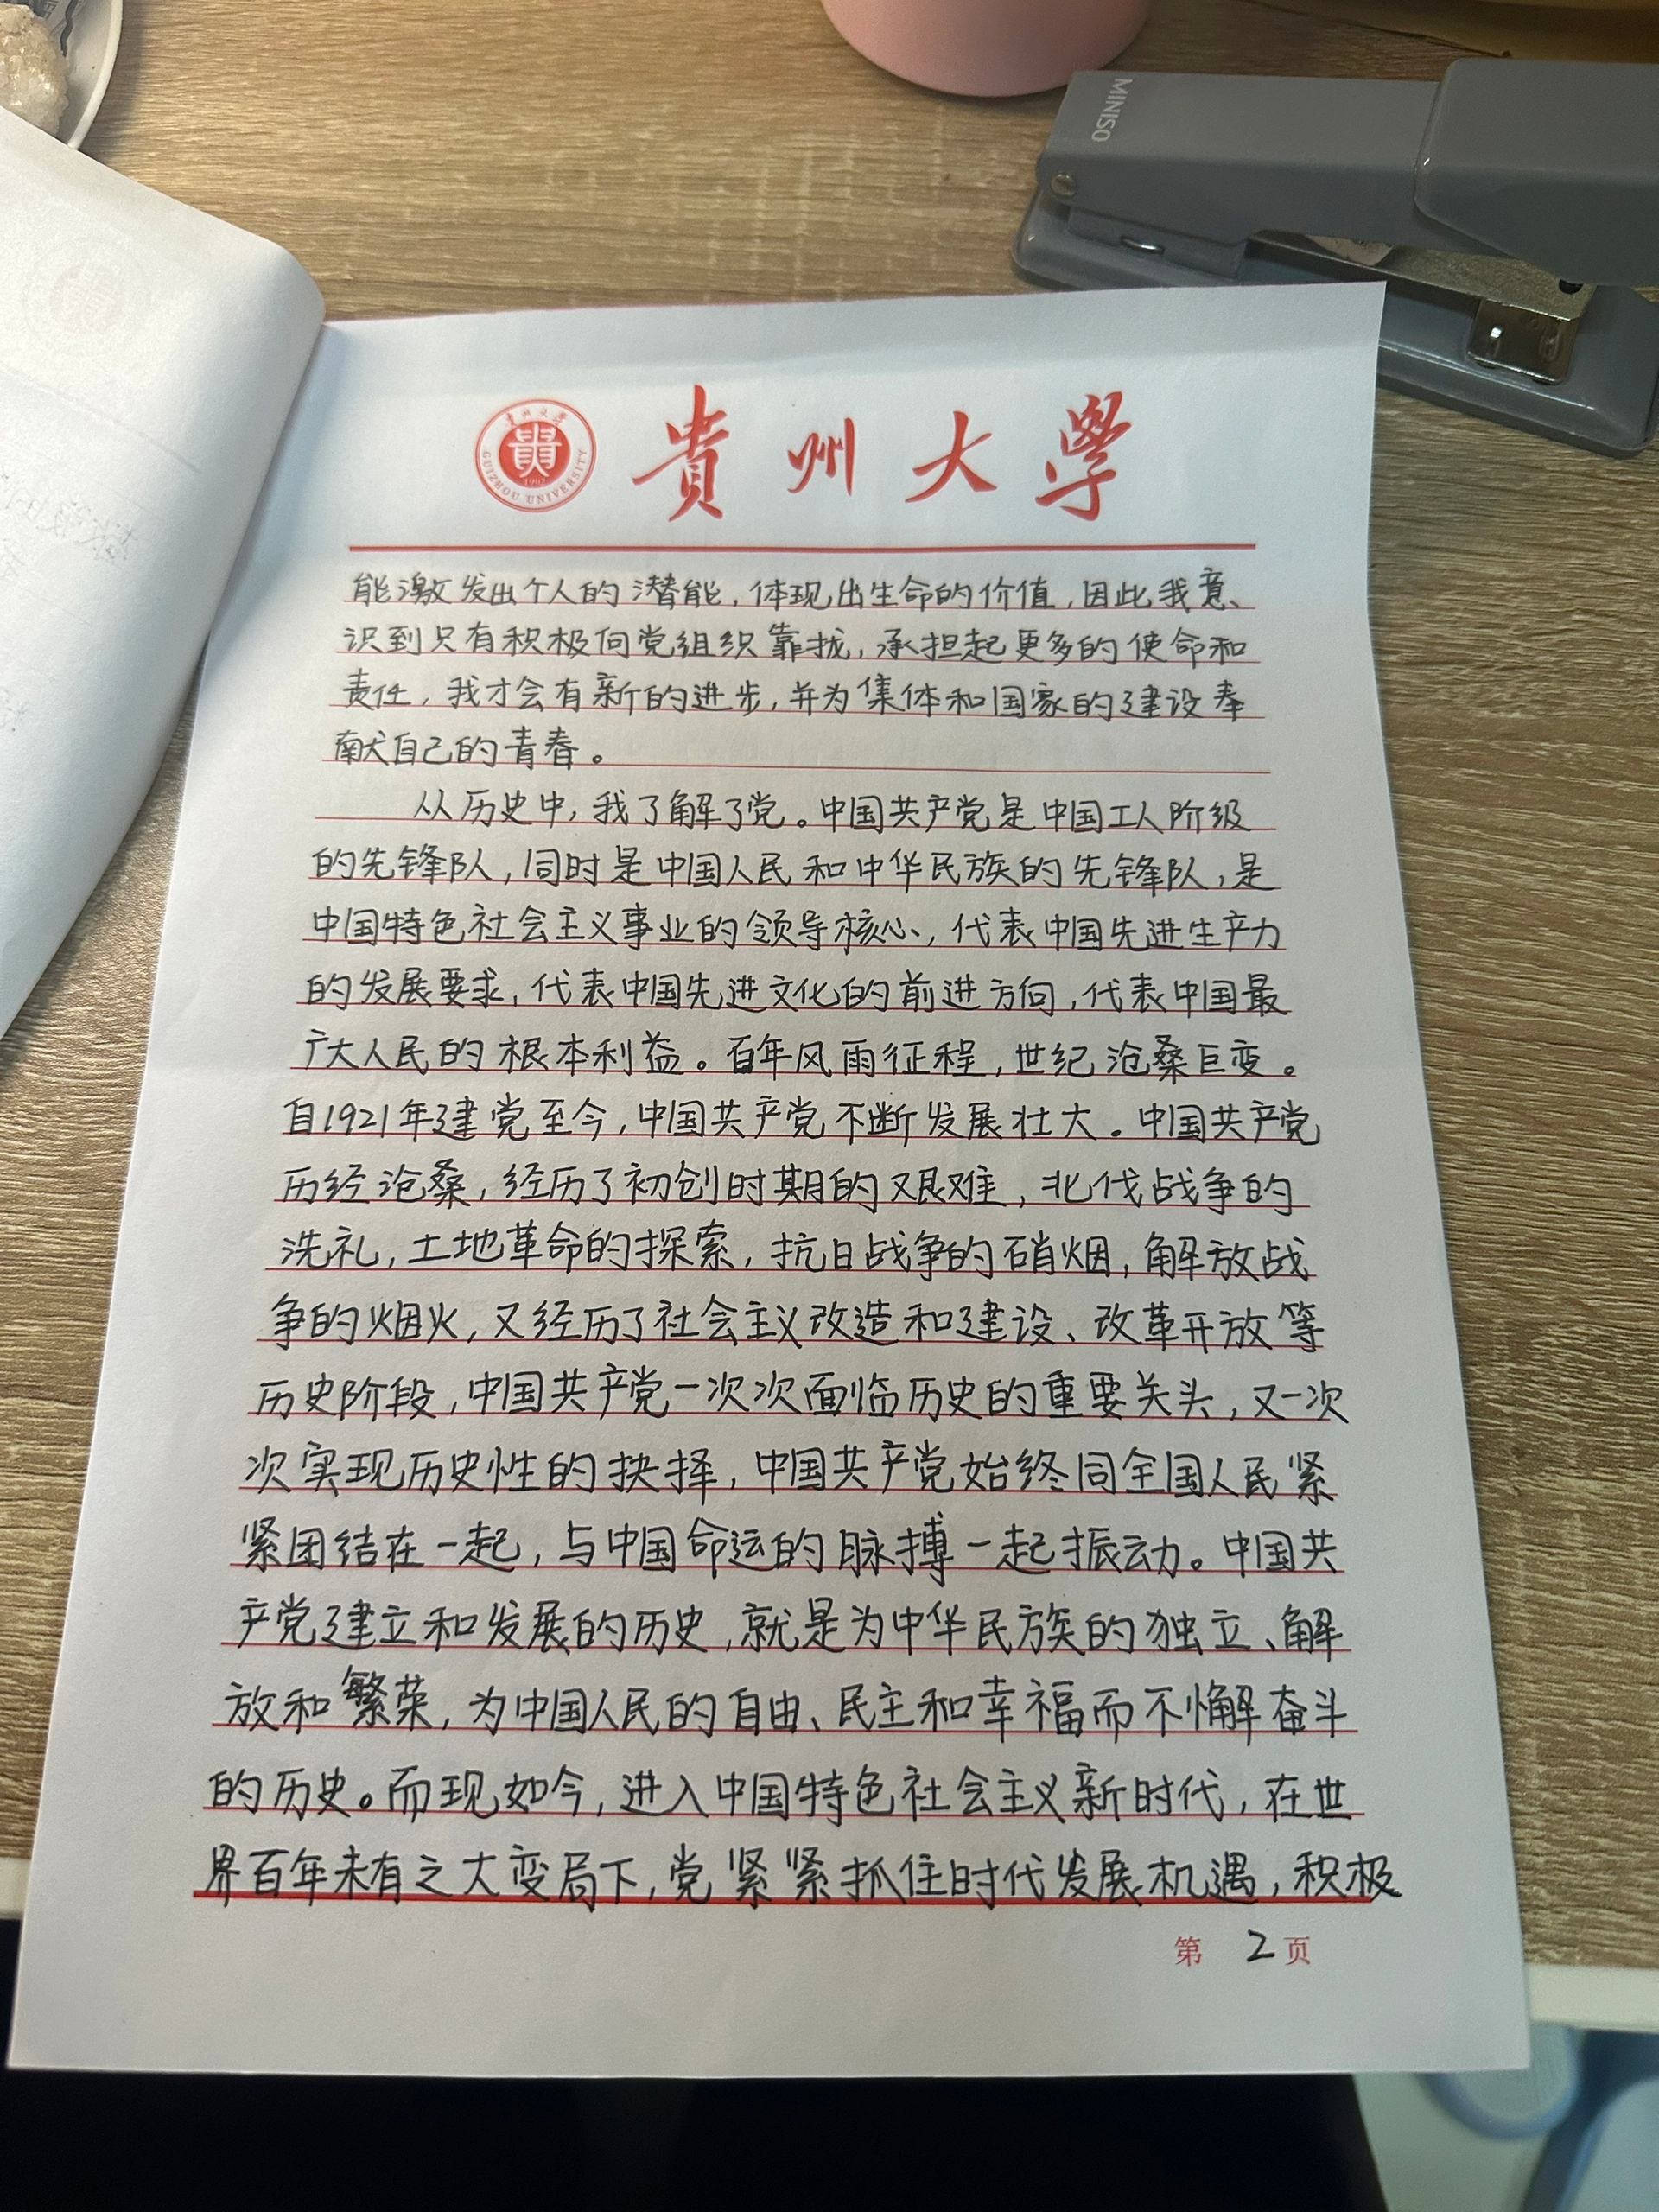 MINISO
貴州大學
GUIZHOU UNIVERSITY
能激发出个人的潜能,体现出生命的价值,因此我意
识到只有积极向党组织靠拢,承担起更多的使命和
责任,我才会有新的进步,并为集体和国家的建设奉
献自己的青春。
从历史中,我了解了党。中国共产党是中国工人阶级
的先锋队,同时是中国人民和中华民族的先锋队,是
中国特色社会主义事业的领导核心,代表中国先进生产力
的发展要求,代表中国先进文化的前进方向,代表中国最
广大人民的根本利益。百年风雨征程,世纪沧桑巨变。
自1921年建党至今,中国共产党不断发展壮大。中国共产党
历经沧桑,经历了初创时期的艰难,北伐战争的
洗礼,土地革命的探索,抗日战争的硝烟,解放战
争的烟火,又经历了社会主义改造和建设、改革开放等
历史阶段,中国共产党一次次面临历史的重要关头,又一次
次实现历史性的抉择,中国共产党始终同全国人民紧
紧团结在一起,与中国命运的脉搏一起振动。中国共
产党建立和发展的历史,就是为中华民族的独立、解
放和繁荣,为中国人民的自由、民主和幸福而不懈奋斗
的历史。而现如今,进入中国特色社会主义新时代,在世
界百年未有之大变局下,党紧紧抓住时代发展机遇,积极
第 2 页